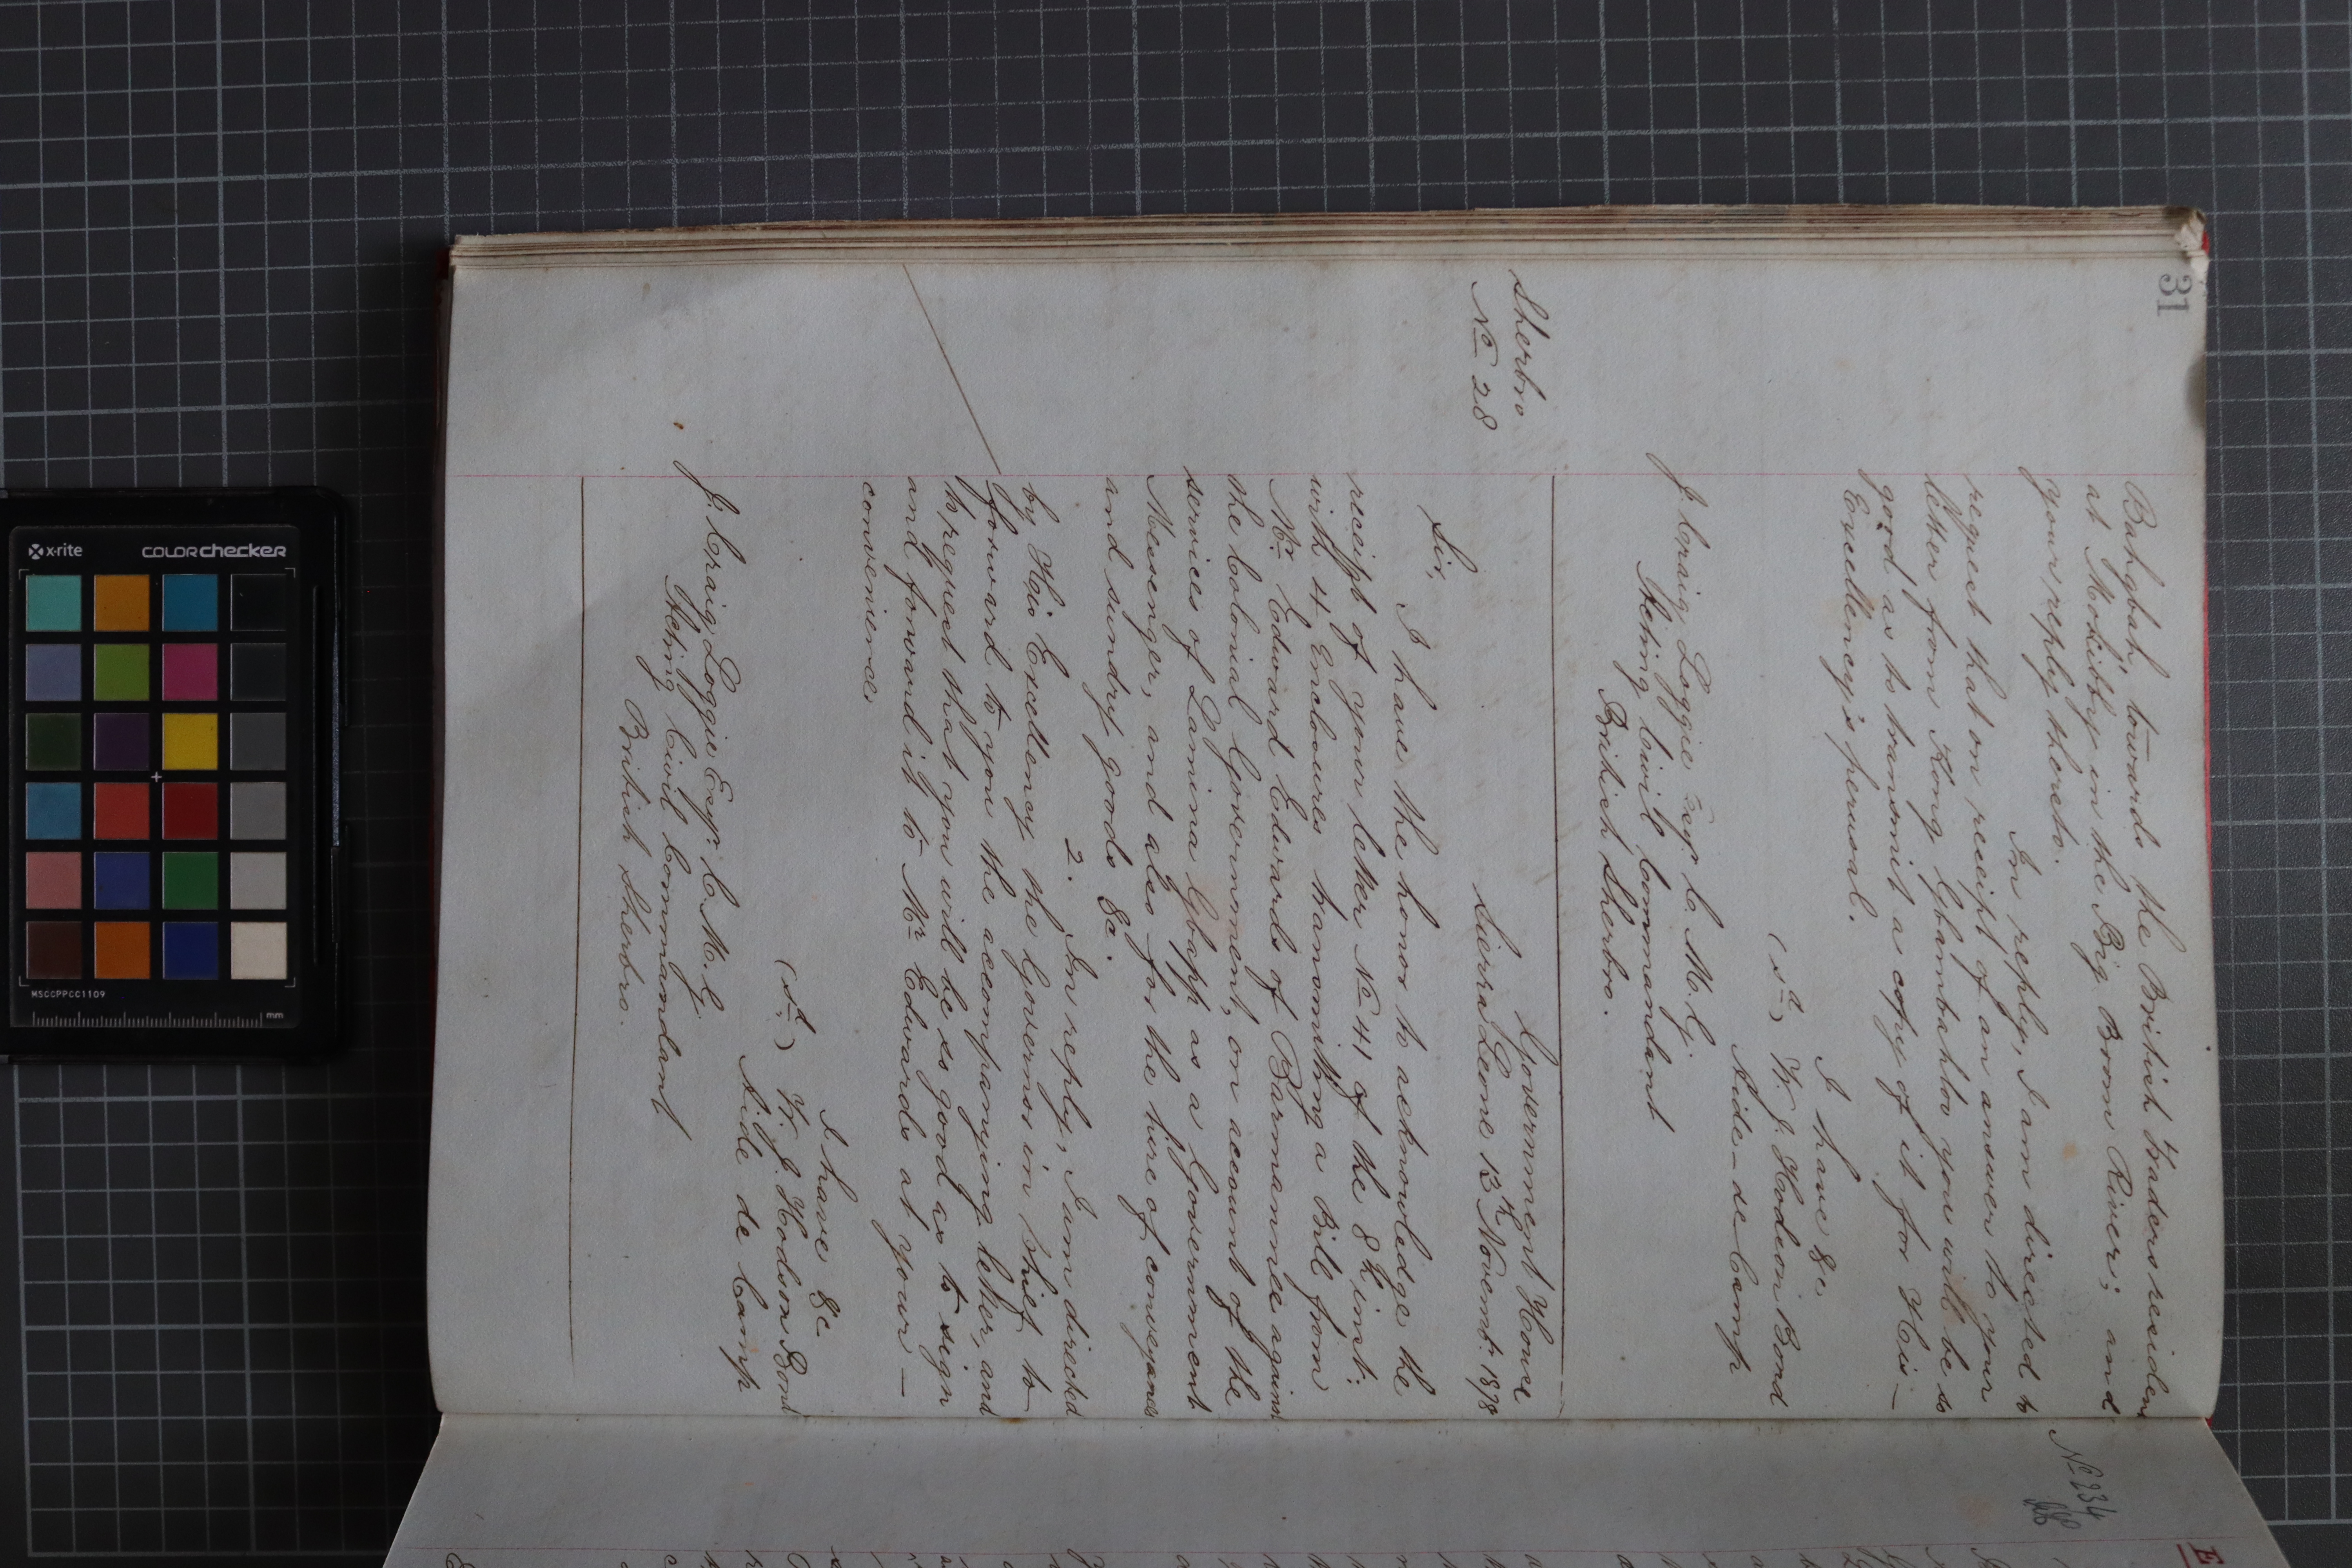 31
Bahgbah, towards the British traders resident
at Mokibby in the Big Boom River; and
your reply thereto.
In reply, I am directed to
request that on receipt of an answer to your
letter from Kong Gbambahloo you will be so
good as to transmit a copy of it for His –
Excellency's perusal.
I have &c.
(sd) W. J. Hodson Bond
Aide-de Camp
J Craig Loggie Esqr C. M. G.
Acting Civil Commandant
British Sherbro.
Sherbro
No 28
Government House
Sierra Leone 13th Novembr. 1878
Sir,
I have the honor to acknowledge the
receipt of your letter No 41 of the 8th inst:
with 4 Enclosures transmitting a Bill from
Mr Edward Edwards of Barmannee against
the Colonial Government, on account of the
services of Lamina Gbapp as a Government
Messenger, and also for the hire of conveyances
and sundry goods &c.
2. In reply, I am directed
by His Excellency the Governor in Chief to –
forward to you the accompanying letter, and
to request that you will be so good as to sign
and forward it to Mr Edwards at your –
convenience
I have &c
(sd) W. J. Hodson Bond
Aide de Camp
J. Craig Loggie Esqr. C. M. G.
Acting Civil Commandant
British Sherbro.
No 234
x-rite
colorchecker
MSCCPPCC1109
mm